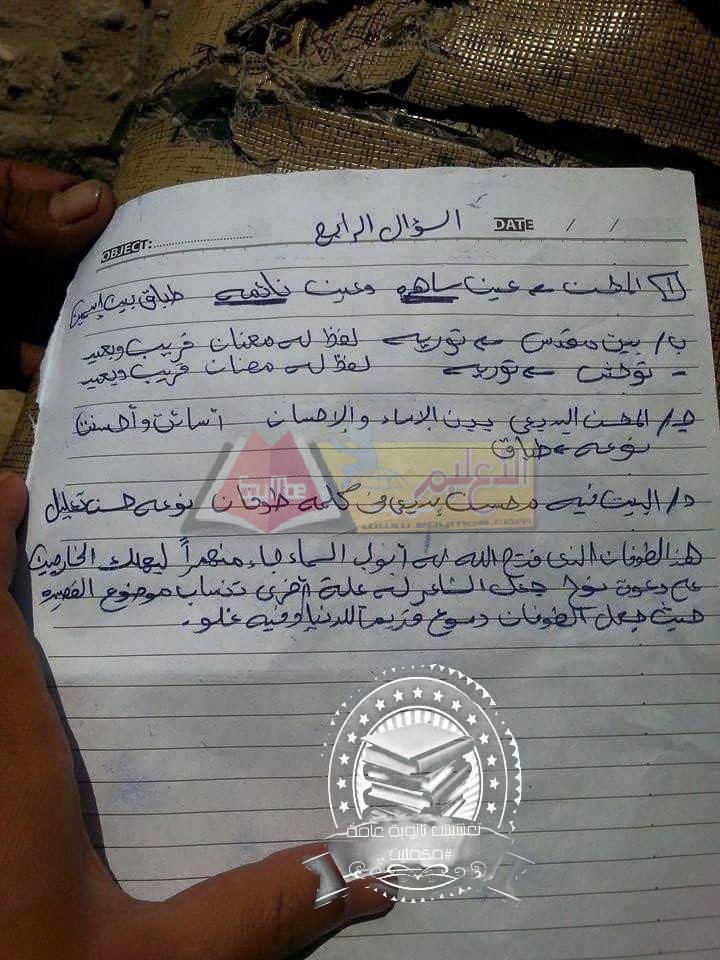 السؤال الرابع
DATE / /
OBJECT:
أ) المحسن عين ساهرة وعين نائمة طباق بين إسمين
ب/ بين مقدس تورية لفظ له معنان قريب وبعيد
- تورية لفظ له معنان قريب وبعيد
ج/ المحسن البديعي بين الإساء والإحسان أسائت وأحسنت
نوعه طباق
د/ البيت فيه محسن بديعى فى كلمة طوفان نوعه حسن تعليل
هذا الطوفان الذى فتح الله له أبواب السماء جاء منهمراً ليهلك الخارجين
على دعوة نوح جعل الشاعر له علة أخرى تناسب موضوع القصيدة
حيث جعل الطوفان دموع للدنيا وفيه غلو.
التعليم
www.egymoe.com
تغشيش ثانوية عامة
#مكملين ..